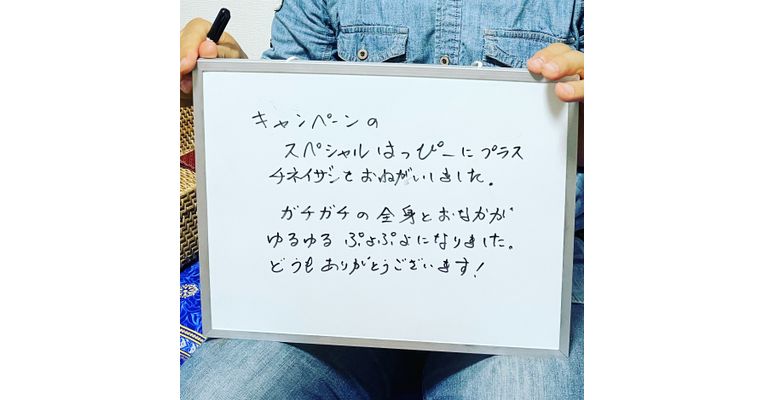 キャンペーンの
スペシャルはっぴーにプラス
チネイザンをおねがいしました。
ガチガチの全身とおなかが
ゆるゆる ぷよぷよになりました。
どうもありがとうございます!